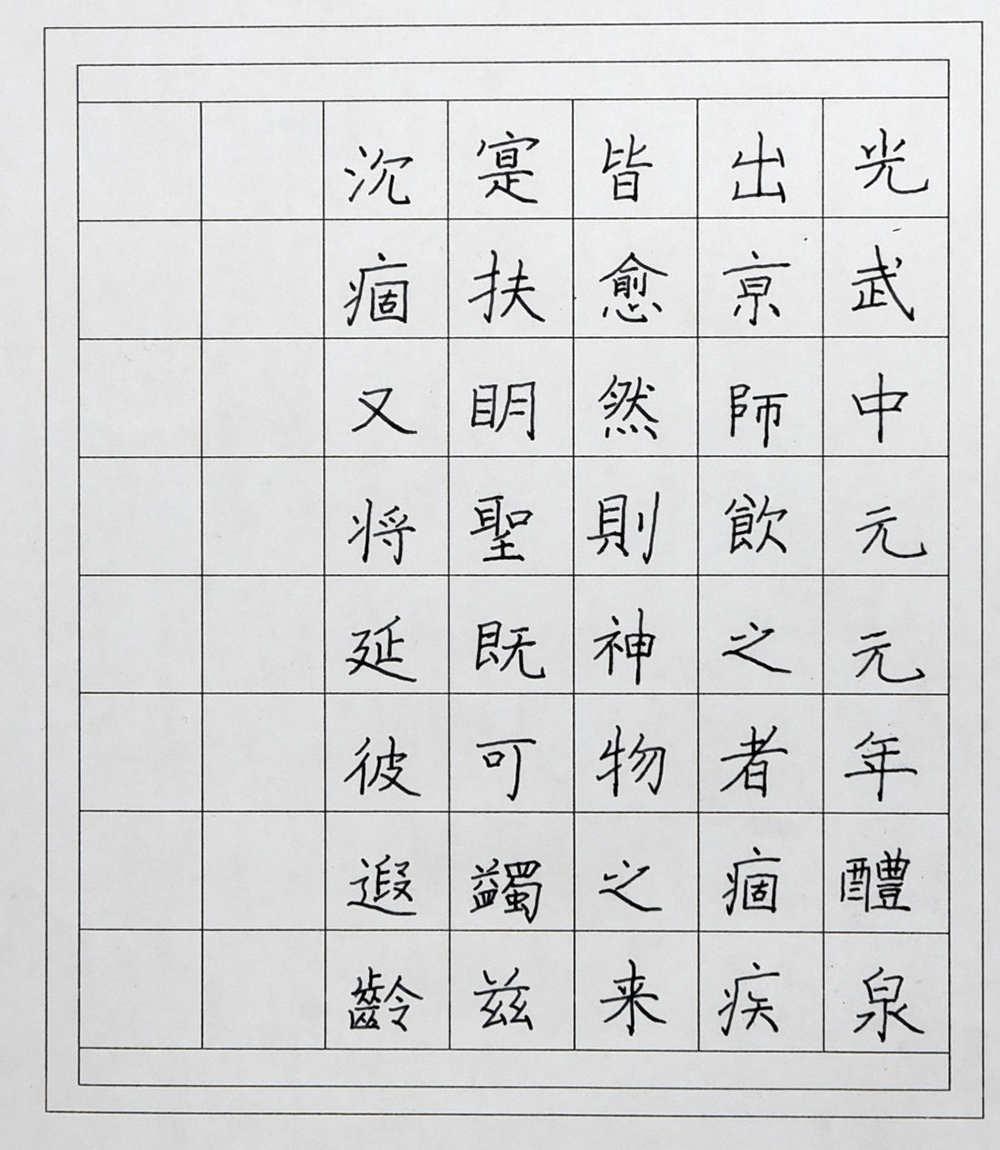 光武中元元年醴泉
出京師飲之者痼疾
皆愈然則神物之来
寔扶明聖既可蠲兹
沉痼又将延彼遐齡